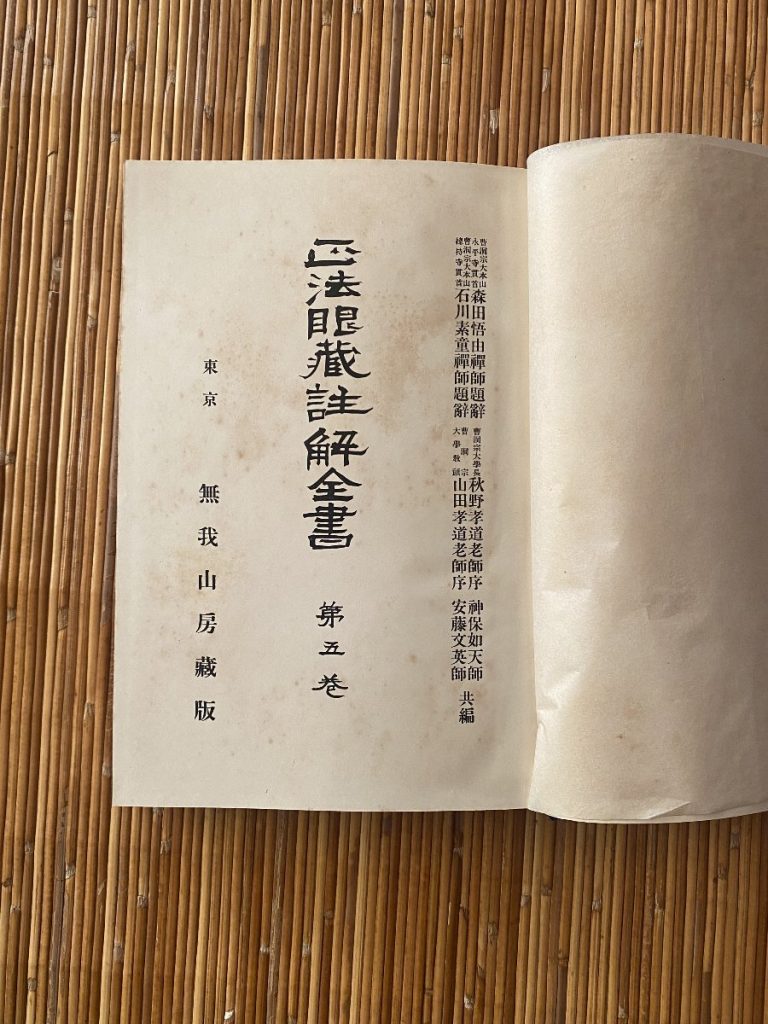 曹洞宗大本山永平寺貫首森田悟由禪師題辭
曹洞宗大本山總持寺貫首石川素童禪師題辭
曹洞宗大學長秋野孝道老師序
曹洞宗大學敎頭山田孝道老師序
神保如天師
安藤文英師
共編
正法眼藏註解全書
第五卷
東京
無我山房藏版